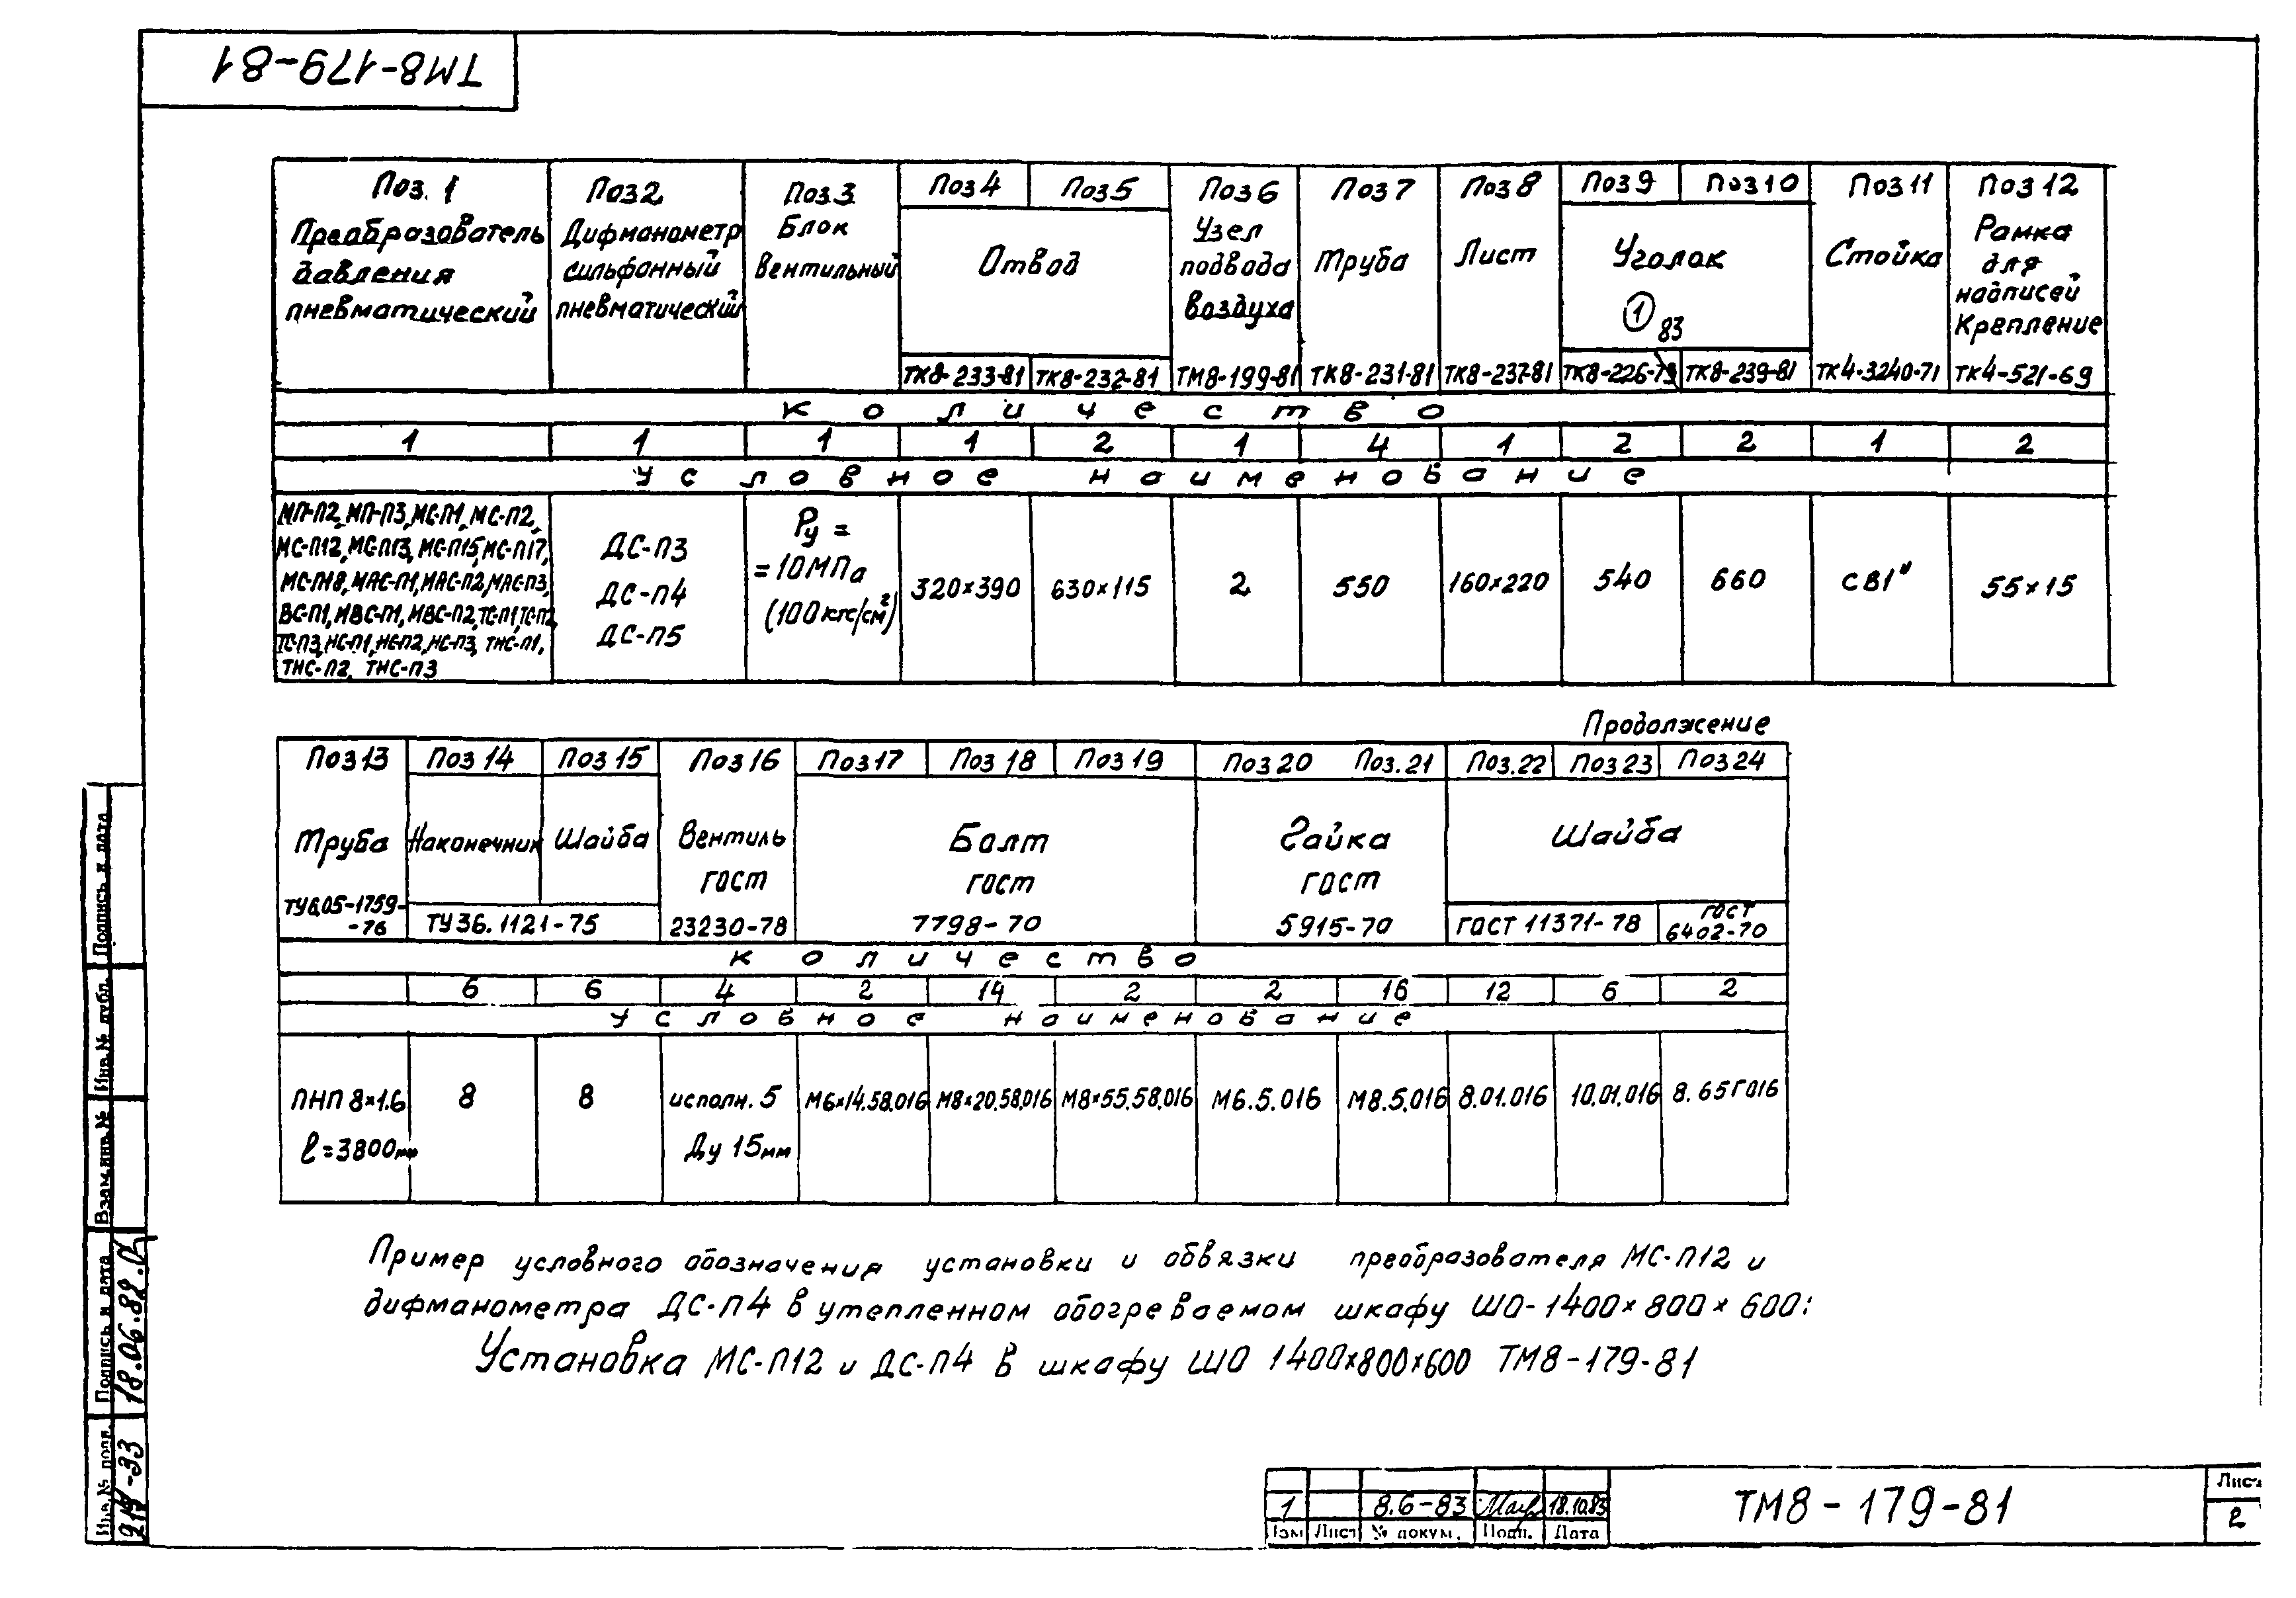 ТМ8-179-81
Поз. 1 Поз2 Поз.3 Поз4 Поз5 Поз6 Поз7 Поз8 Поз9 Поз10 Поз11 Поз12
Преобразователь давления пневматический
Дифманометр сильфонный пневматический
Блок вентильный
Отвод
Узел подвода воздуха
Труба
Лист
Уголок
1 83
Стойка
Рамка для надписей Крепление
ТК8-233-81 ТК8-232-81 ТМ8-199-81 ТК8-231-81 ТК8-237-81 ТК8-226-79 ТК8-239-81 ТК4-3240-71 ТК4-521-69
Количество
1 1 1 1 2 1 4 1 2 2 1 2
Условное наименование
МП-П2, МП-П3, МС-П1, МС-П2,
МС-П12, МС-П13, МС-П15, МС-П17,
МС-П18, МАС-П1, МАС-П2, МАС-П3,
ВС-П1, МВС-П1, МВС-П2, ТС-П1, ТС-П2,
ТС-П3, НС-П1, НС-П2, НС-П3, ТНС-П1,
ТНС-П2, ТНС-П3
ДС-П3
ДС-П4
ДС-П5
Ру =
= 10МПа
(100кгс/см²)
320×390 630×115 2 550 160×220 540 660 СВ1" 55×15
Продолжение
Поз13 Поз14 Поз15 Поз16 Поз17 Поз18 Поз19 Поз20 Поз.21 Поз.22 Поз23 Поз24
Труба Наконечник Шайба Вентиль Болт Гайка Шайба
ГОСТ ГОСТ ГОСТ
ТУ6.05-1759-76 ТУ36.1121-75 23230-78 7798-70 5915-70 ГОСТ 11371-78 ГОСТ 6402-70
Количество
6 6 4 2 14 2 2 16 12 6 2
Условное наименование
ПНП 8×1.6 8 8 исполн. 5 М6×14.58.016 М8×20.58.016 М8×55.58.016 М6.5.016 М8.5.016 8.01.016 10.01.016 8.65Г016
ℓ=3800мм Ду 15мм
Пример условного обозначения установки и обвязки преобразователя МС-П12 и
дифманометра ДС-П4 в утепленном обогреваемом шкафу ШО-1400×800×600:
Установка МС-П12 и ДС-П4 в шкафу ШО 1400×800×600 ТМ8-179-81
Подпись и дата
Инв.№ дубл.
Взам.инв.№
Подпись и дата
18.06.82
Инв.№ подл.
1 8.6-83 18.10.83
Изм Лист № докум. Подп. Дата
ТМ8-179-81
Лист
2